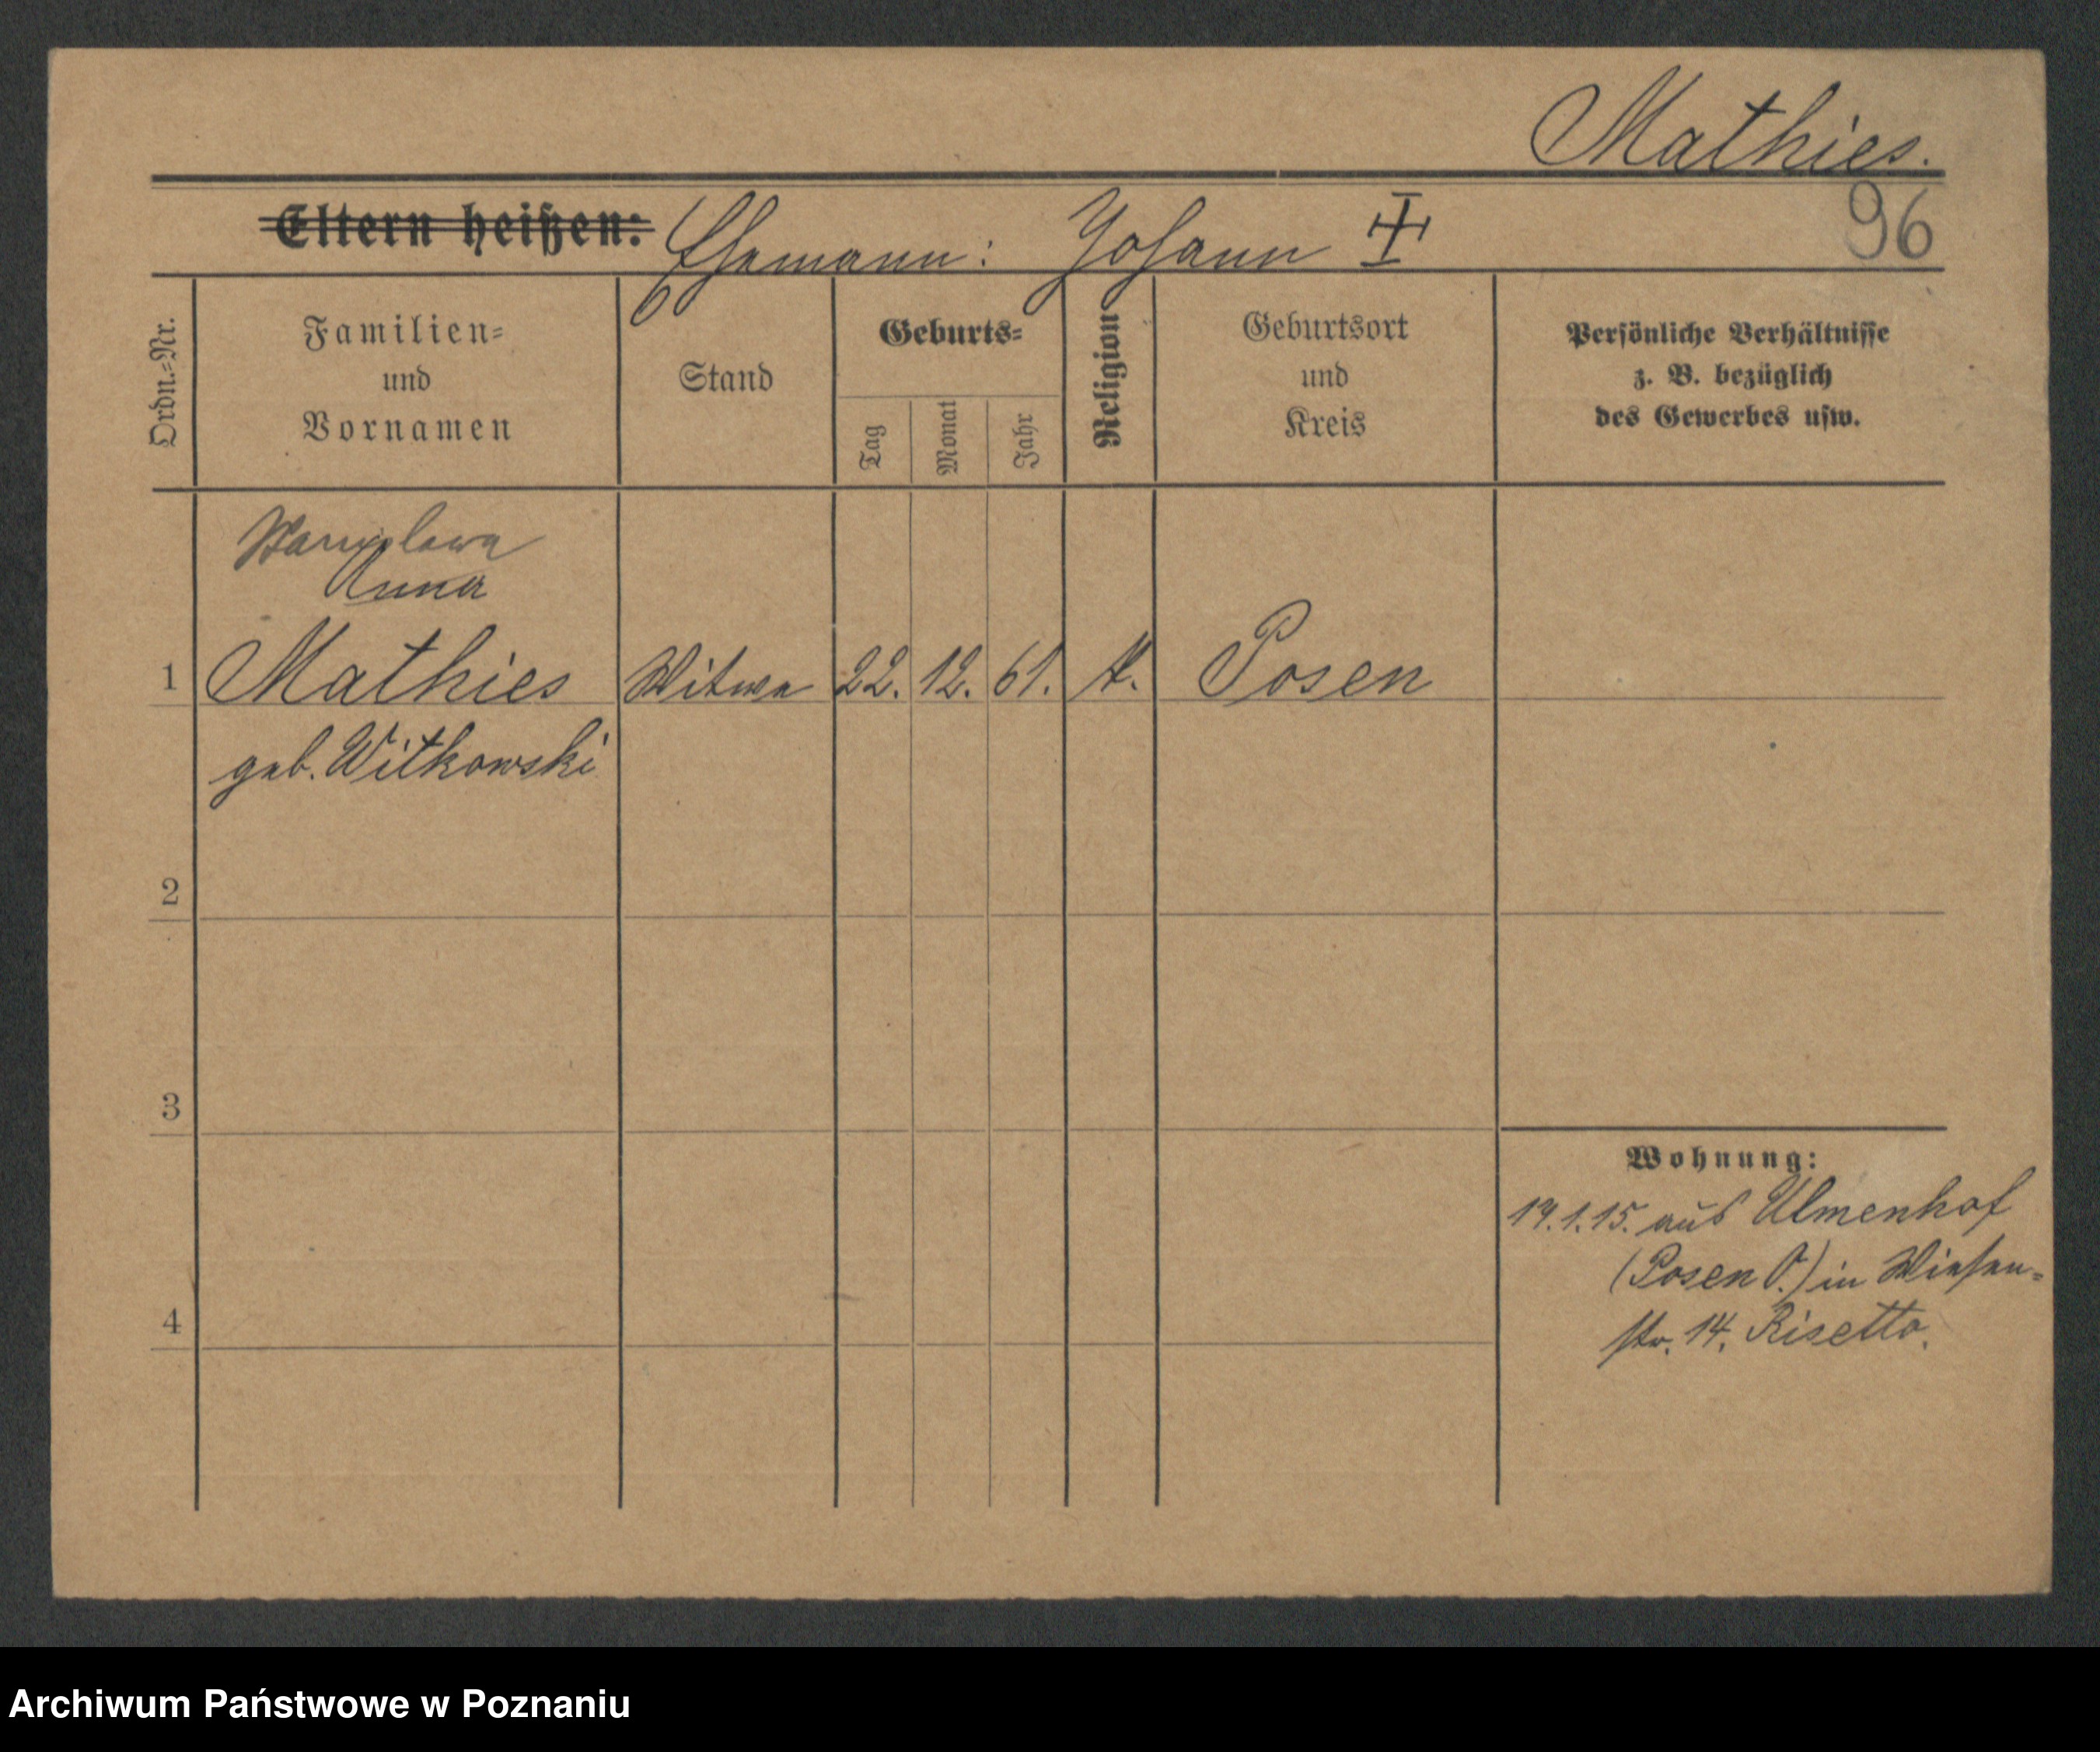 Mathies.
Eltern heißen: Ehemann: Johann
96
Ordn.-Nr.
Familien-
und
Vornamen
Stand
Geburts-
Tag
Monat
Jahr
Religion
Geburtsort
und
Kreis
Persönliche Verhältnisse
z. B. bezüglich
des Gewerbes usw.
Anna
1 Mathies Witwe 22. 12. 61. k. Posen
geb. Witkowski
2
3
4
Wohnung:
19.1.15. aus Ulmenhof
(Posen O.) in Wiesen-
str. 14. Risetto.
Archiwum Państwowe w Poznaniu